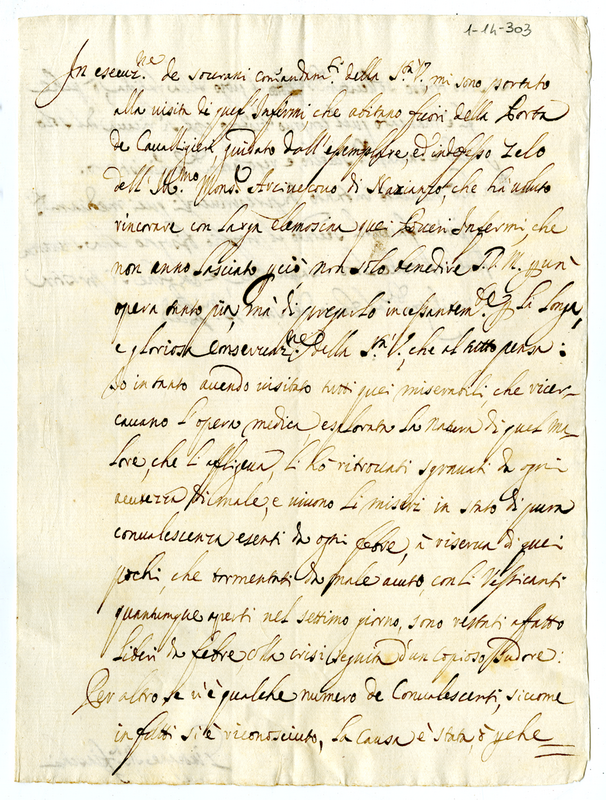 1-14-303
In esecuz.ne de sourani comandam.ti della S.tà V., mi sono portato
alla uisita di quest'Infermi che abitano fuori della Porta
de Caualligieri, guidato dall'esemplare, ed indefesso zelo
dell'Ill.mo Mons.r Arciuescouo di Nazianzo, che hà uoluto
rincorare con larga elemosina quei Poueri Infermi, che
non anno lasciato p ciò non solo benedire S.D.M. p un'
opera tanto pia, mà di pregarlo incessantem.te p la longa,
e gloriosa Conseruaz.ne della S.tà V., che al tutto pensa:
Io intanto auendo uisitato tutti quei miserabili, che ricer-
cauano l'opera medica, esplorata la natura di quel ma-
lore, che li affligeua, li hò ritrouati sgrauati da ogni
acutezza di male, e uiuono li miseri in stato di pura
conualescenza esenti da ogni febre, à riserua di quei
pochi, che tormentati da male acuto, con li Vessicanti
quantunque aperti nel settimo giorno, sono restati affatto
liberi da febre colla crisi seguita d'un copioso sudore:
Per altro se u'è qualche numero de Conualescenti, siccome
in fatti si è riconosciuto, la causa è stata, ò p che